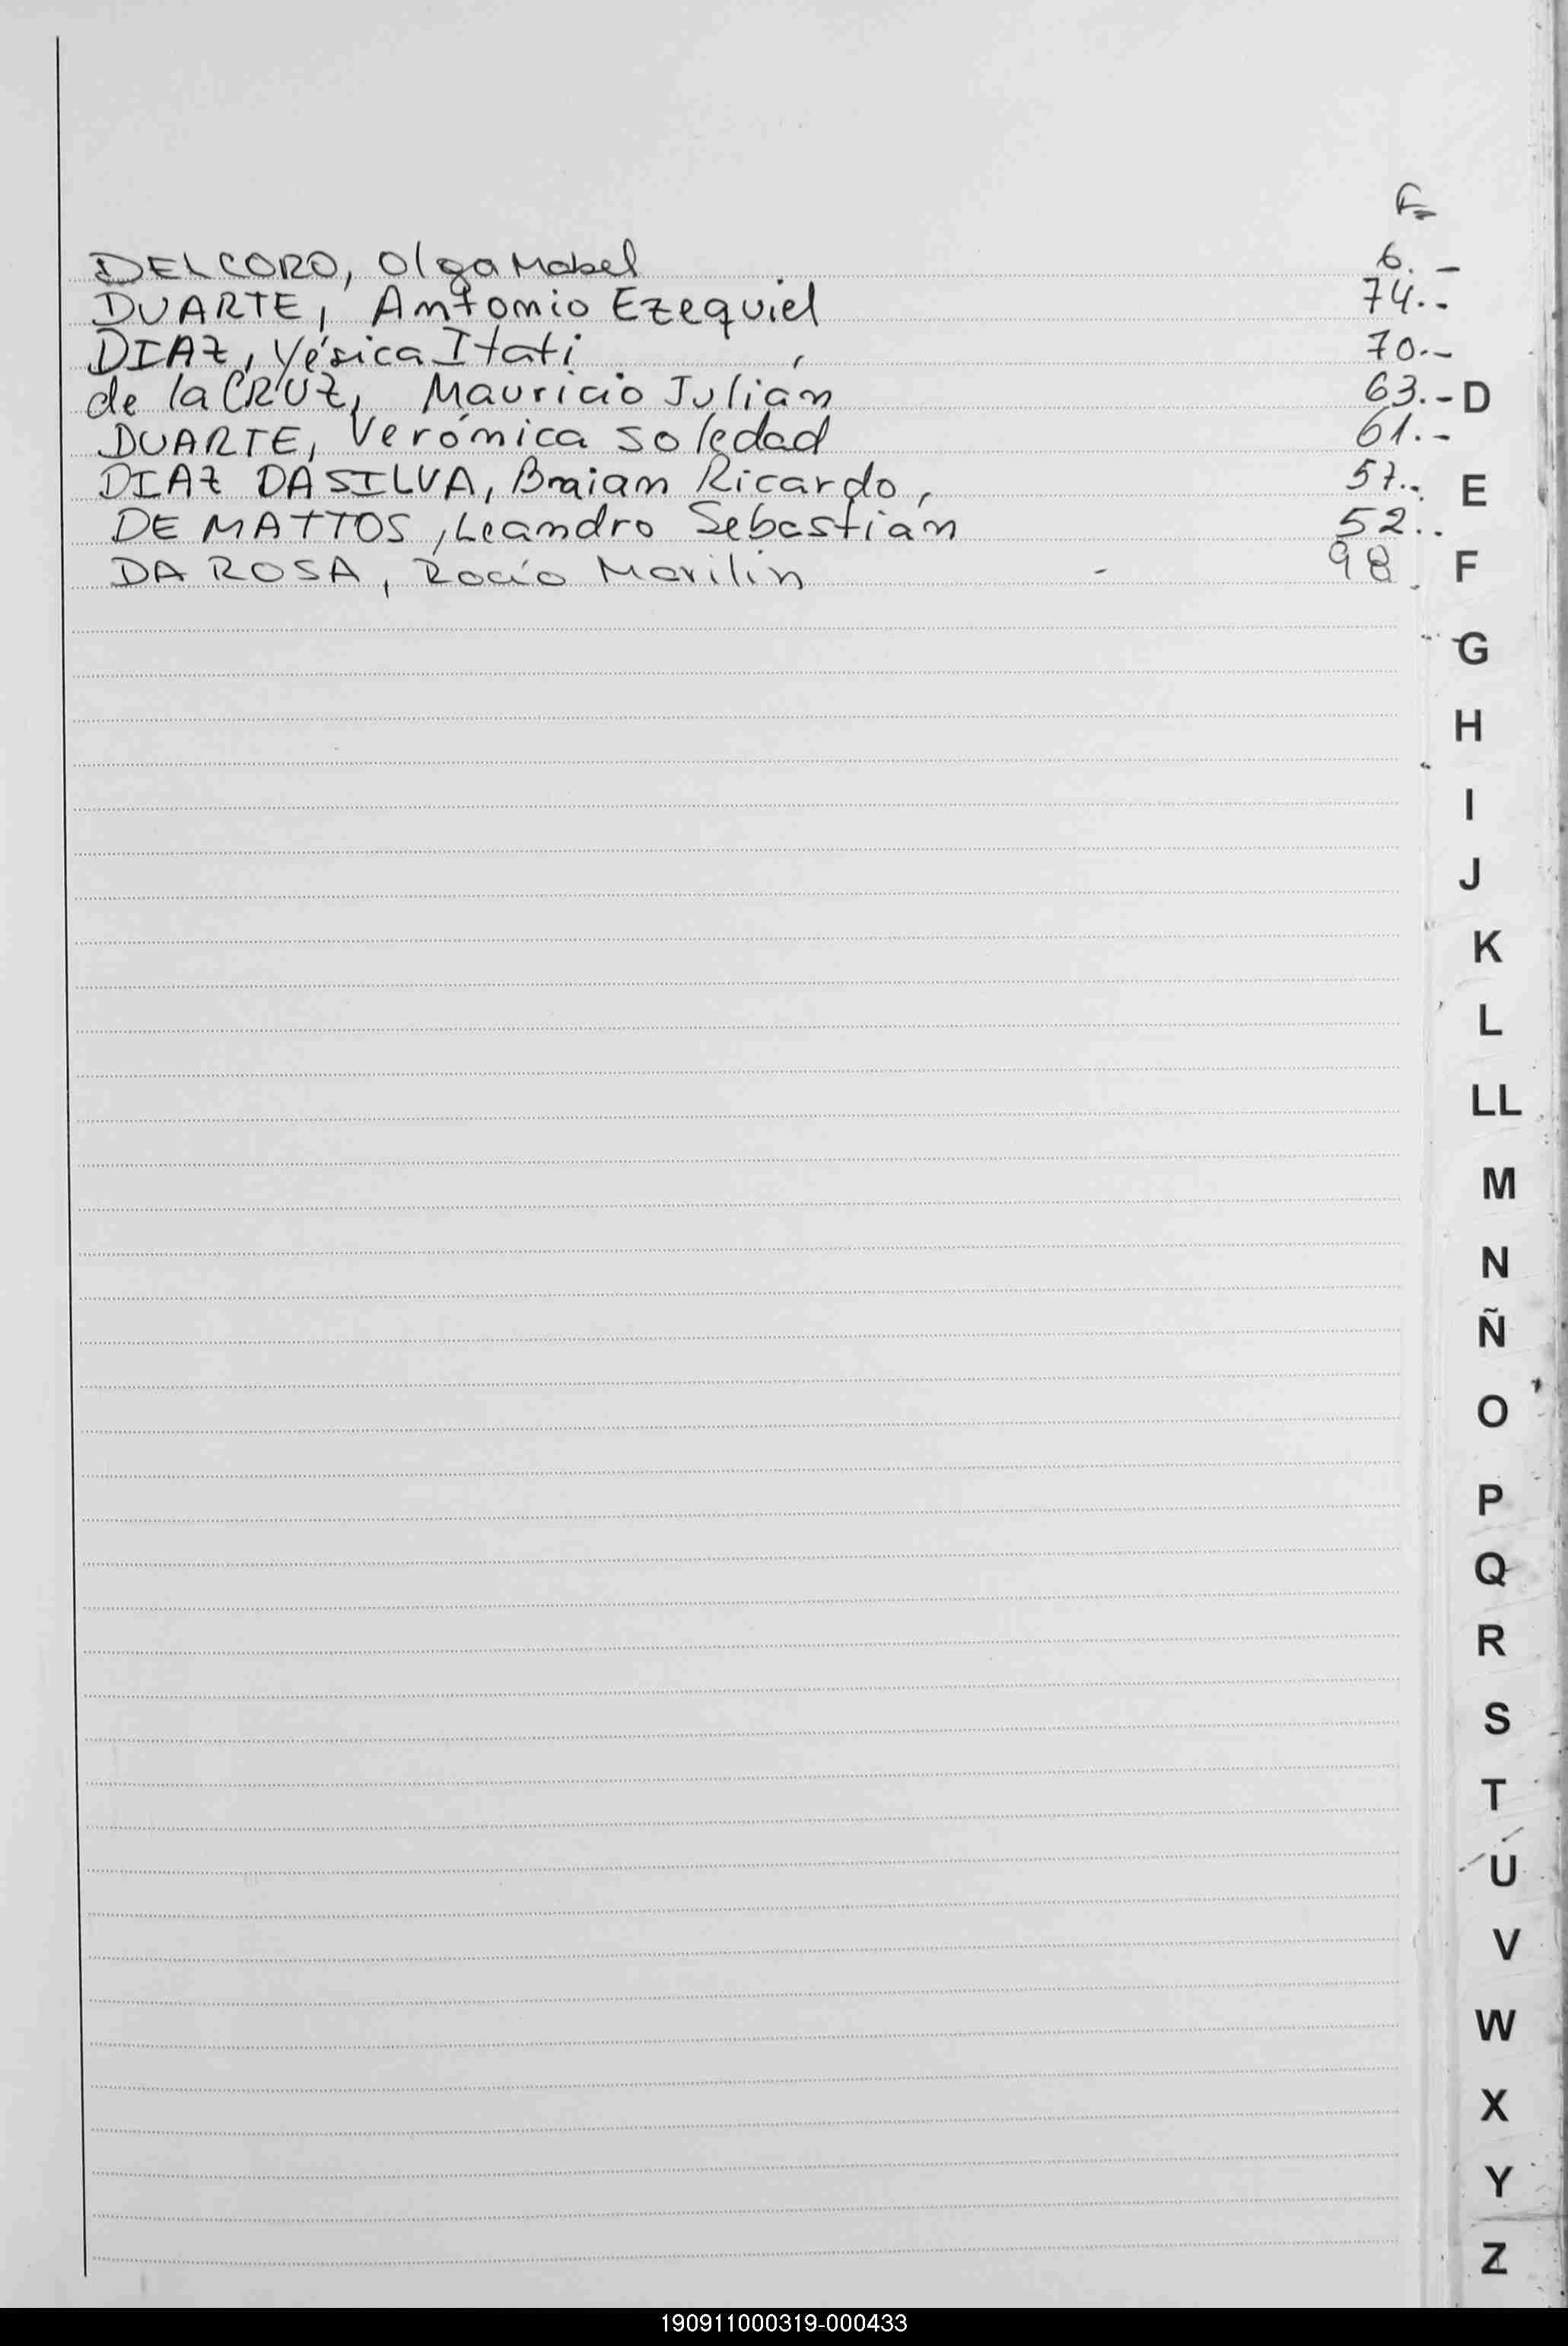 F=
DELCORO, Olga Mabel 6.-
DUARTE, Antonio Ezequiel 74.--
DIAZ, Yésica Itati 70.--
de la CRUZ, Mauricio Julián 63.- D
DUARTE, Verónica Soledad 61.--
DIAZ DA SILVA, Braian Ricardo, 57.-. E
DE MATTOS, Leandro Sebastián 52..
DA ROSA, Rocío Marilin - 98. F
G
H
I
J
K
L
LL
M
N
Ñ
O
P
Q
R
S
T
U
V
W
X
Y
Z
190911000319-000433